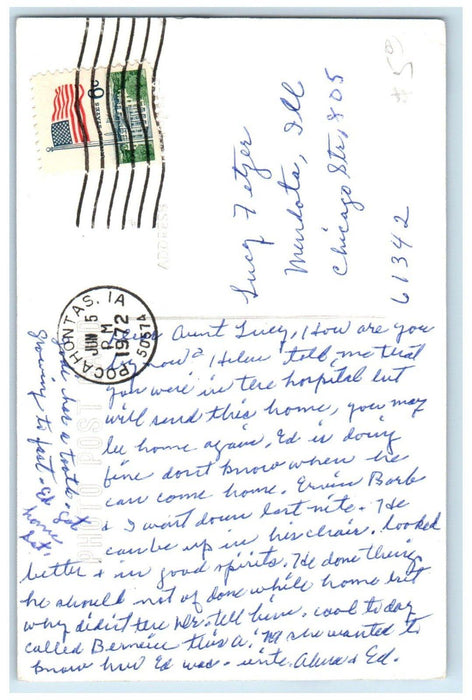 $5.00
UNITED STATES 6c
POCAHONTAS, IA
JUN 5
PM
1972
50574
ADDRESS
PHOTO POST CARD
Lucy Fetzer
Mendota, Ill
Chicago Str, 805
61342
Dear Aunt Lucy, How are you
by now? Helen told me that
you were in the hospital but
will send this home, you may
be home again. Ed is doing
fine dont know when he
can come home. Ervin Barb
& I went down last nite. He
can be up in his chair. looked
better & in good spirits. He done things
he should not of done while home but
why didn't the Dr. tell him. cool today
called Berneice this A.M she wanted to
know how Ed was. write. Alma & Ed.
has a tooth
Growing to fast. Ed
home